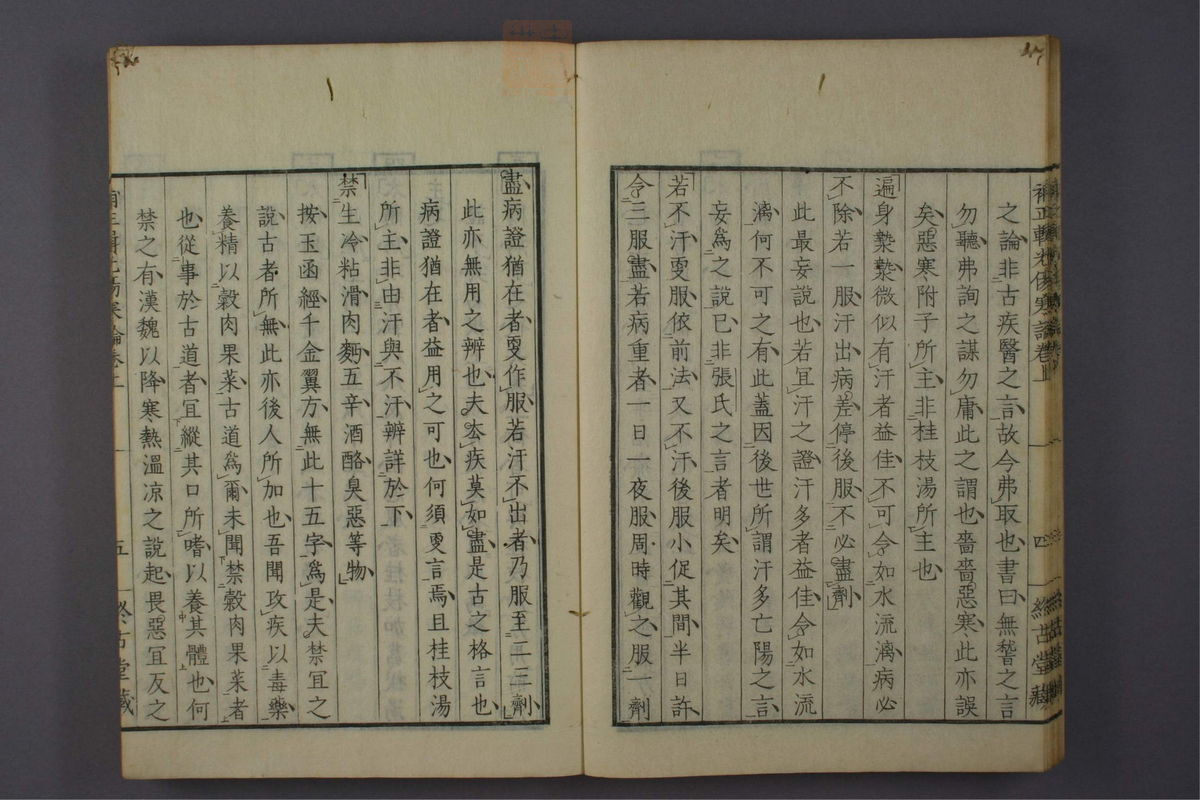 補正輯光傷寒論卷上
四
終古堂藏
之論非古疾醫之言故今弗取也書曰無稽之言
勿聽弗詢之謀勿庸此之謂也嗇嗇惡寒此亦誤
矣惡寒附子所主非桂枝湯所主也
遍身漐漐微似有汗者益佳不可令如水流漓病必
不除若一服汗出病差停後服不必盡劑
此最妄說也若宜汗之證汗多者益佳令如水流
漓何不可之有此蓋因後世所謂汗多亡陽之言
妄爲之說已非張氏之言者明矣
若不汗更服依前法又不汗後服小促其間半日許
令三服盡若病重者一日一夜服周時觀之服一劑
盡病證猶在者更作服若汗不出者乃服至二三劑
此亦無用之辨也夫去疾莫如盡是古之格言也
病證猶在者益用之可也何須更言焉且桂枝湯
所主非由汗與不汗辨詳於下
禁生冷粘滑肉麪五辛酒酪臭惡等物
按玉函經千金翼方無此十五字爲是夫禁宜之
說古者所無此亦後人所加也吾聞攻疾以毒藥
養精以穀肉果菜古道爲爾未聞禁穀肉果菜者
也從事於古道者宜縱其口所嗜以養其體也何
禁之有漢魏以降寒熱溫凉之說起畏惡宜反之
五
終古堂藏